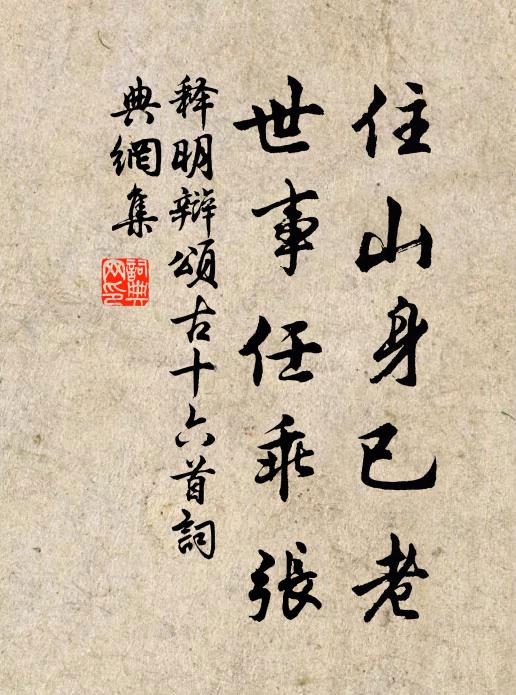 住山身已老
世事任乖張
释明辩頌古十六首詞
典網集
詞典
网印